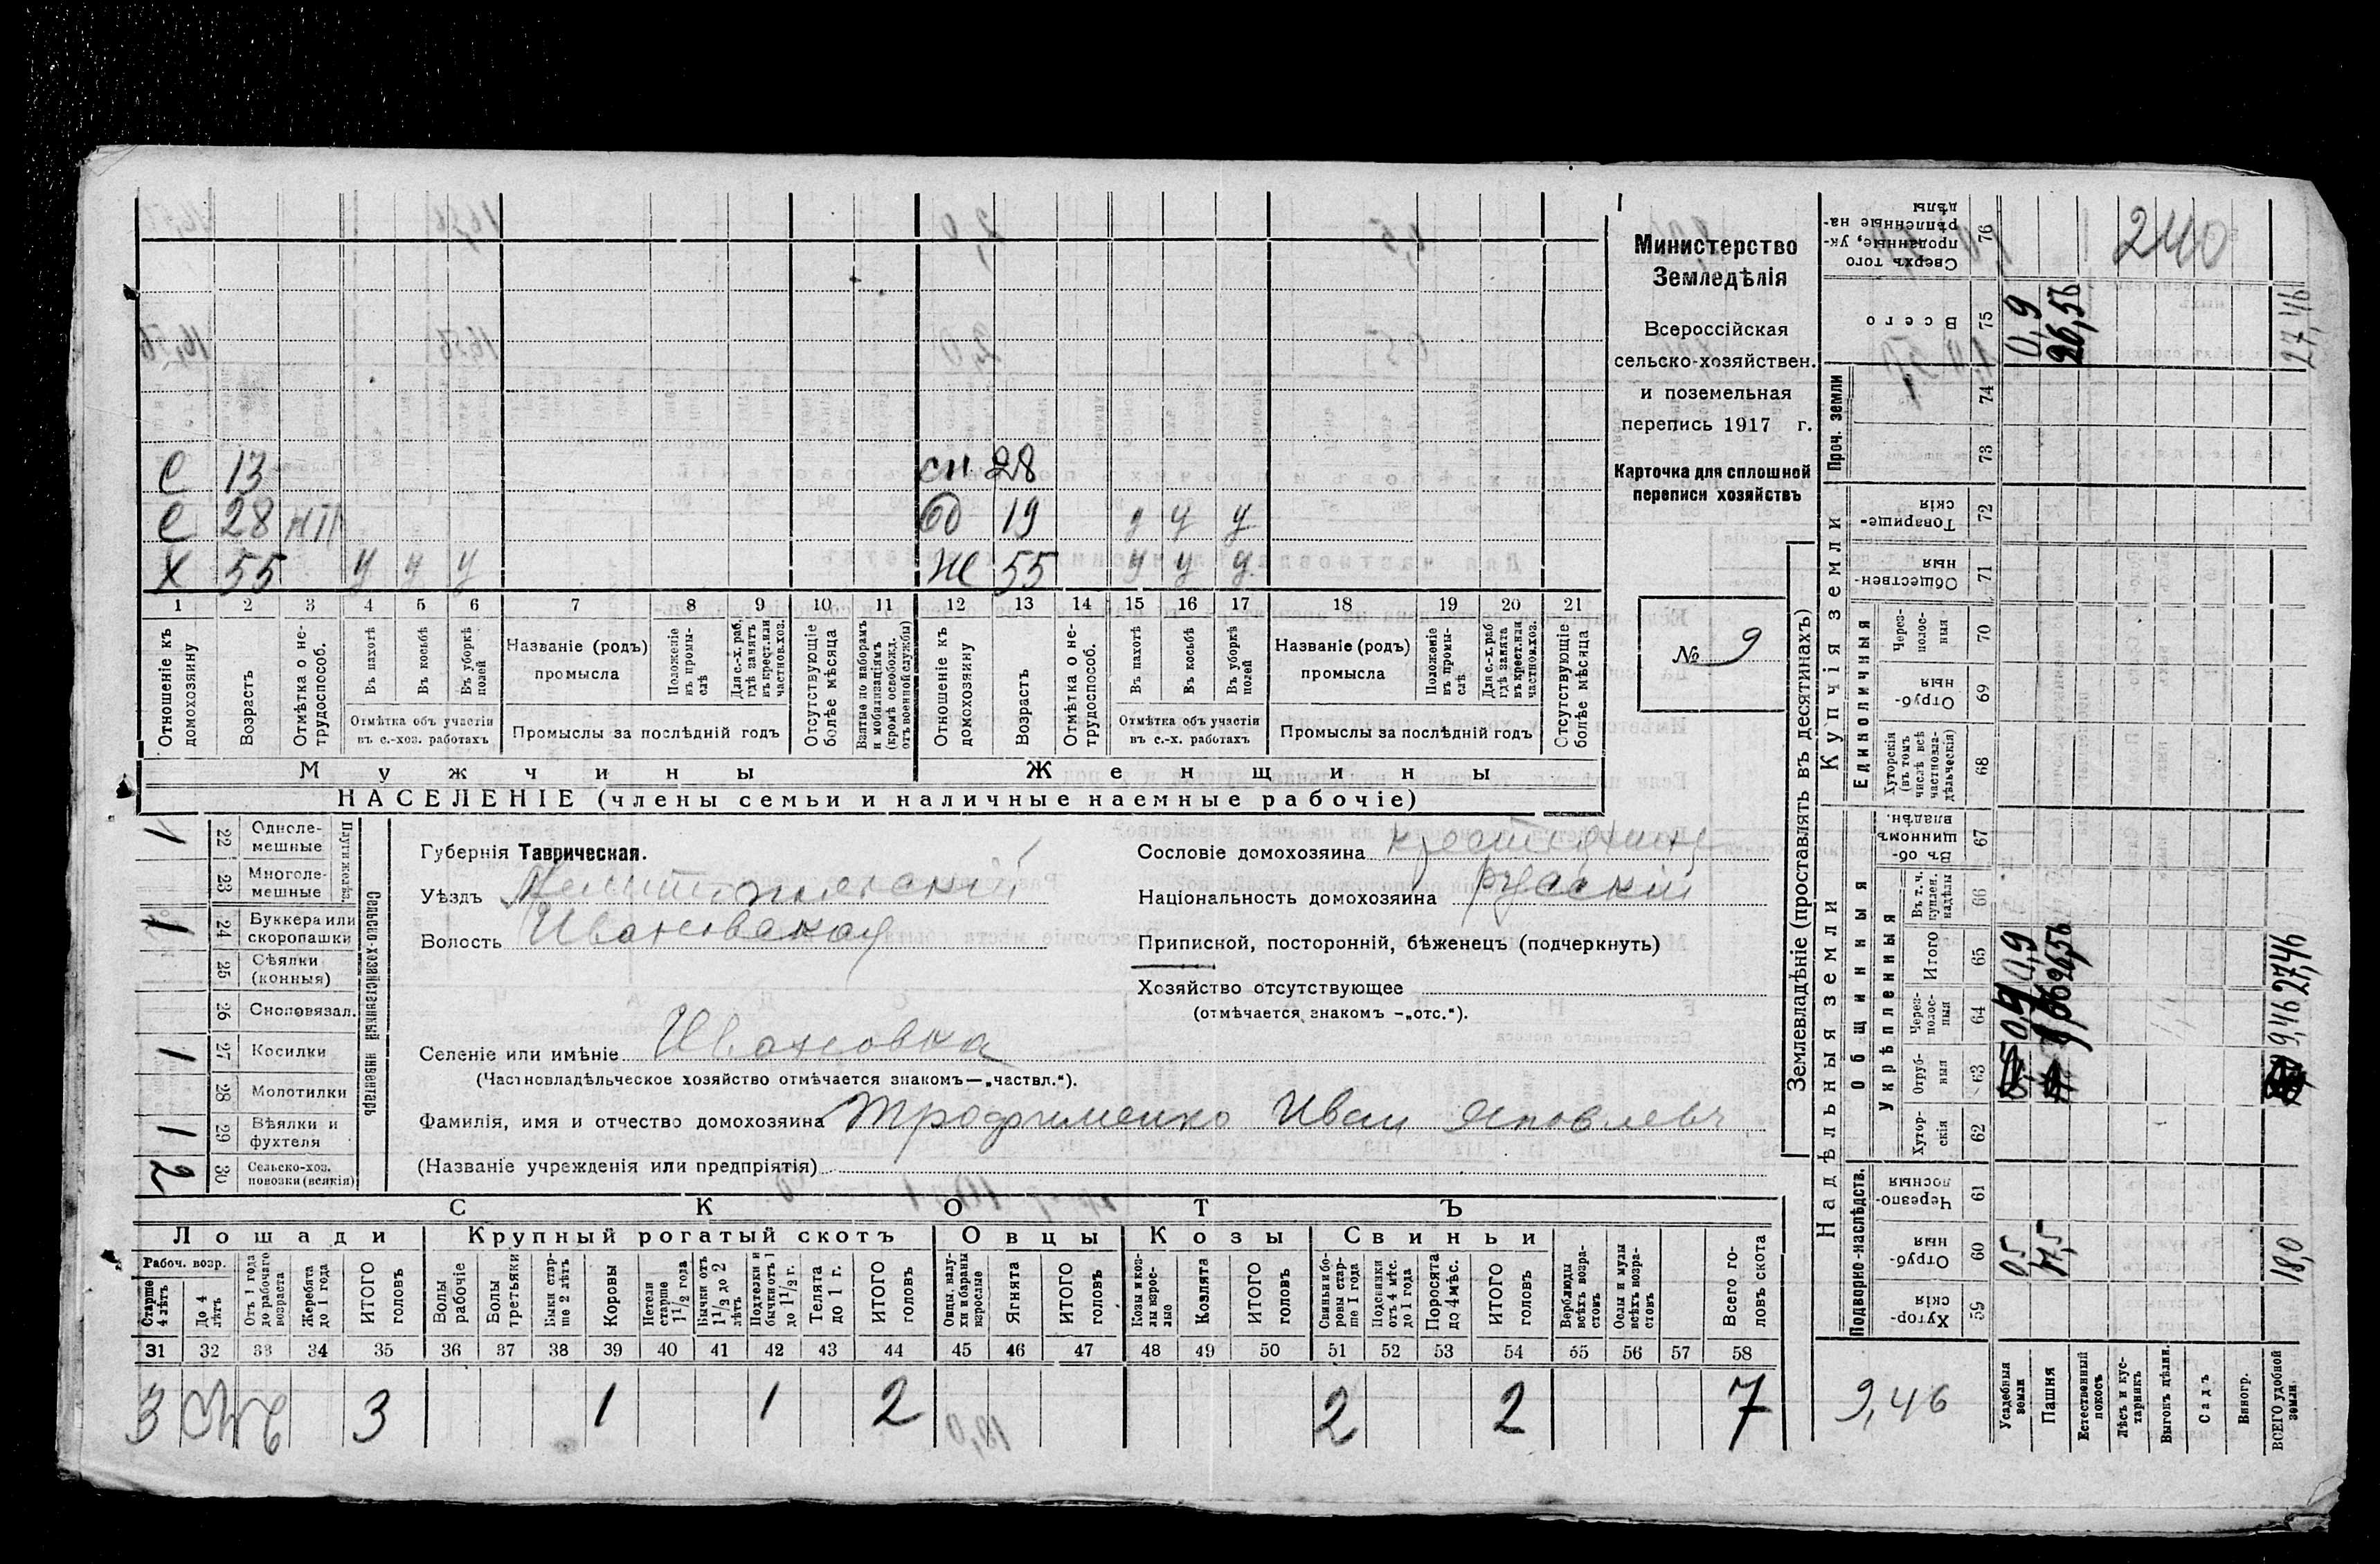 Министерство
Земледѣлія
Всероссійская
сельско-хозяйствен.
и поземельная
перепись 1917 г.
Карточка для сплошной
переписи хозяйствъ
№ 9
С 13
С 28 НП
Х 55 у у у
сн 28
19 у у у
Ж 55 у у у
1 2 3 4 5 6 7 8 9 10 11 12 13 14 15 16 17 18 19 20 21
Отношеніе къ домохозяину
Возрастъ
Отмѣтка о нетрудоспособ.
Въ пахотѣ
Въ косьбѣ
Въ уборкѣ полей
Отмѣтка объ участіи
въ с.-хоз. работахъ
Названіе (родъ)
промысла
Положеніе въ промыслѣ
Для с.-х. раб. гдѣ занятъ въ крест. или частновл. хоз.
Промыслы за послѣдній годъ
Отсутствующіе болѣе мѣсяца
Взятые по наборамъ и мобилизаціямъ (кромѣ освобожд. отъ военной службы)
Отношеніе къ домохозяину
Возрастъ
Отмѣтка о нетрудоспособ.
Въ пахотѣ
Въ косьбѣ
Въ уборкѣ полей
Отмѣтка объ участіи
въ с.-х. работахъ
Названіе (родъ)
промысла
Положеніе въ промыслѣ
Для с.-х. раб. гдѣ занята въ крест. или частном. хоз.
Промыслы за послѣдній годъ
Отсутствующіе болѣе мѣсяца
Мужчины
Женщины
НАСЕЛЕНІЕ (члены семьи и наличные наемные рабочіе)
1 22 Однолемешные
23 Многолемешные
1 24 Буккера или скоропашки
25 Сѣялки (конныя)
26 Сноповязал.
1 27 Косилки
28 Молотилки
1 29 Вѣялки и фухтеля
2 30 Сельско-хоз. повозки (всякія)
Сельско-хозяйственный инвентарь
Губернія Таврическая.
Уѣздъ Мелитопольскій
Волость Ивановская
Селеніе или имѣніе Ивановка
(Частновладѣльческое хозяйство отмѣчается знакомъ—„частвл.“).
Фамилія, имя и отчество домохозяина Трофименко Иван Яковлевъ
(Названіе учрежденія или предпріятія)
Сословіе домохозяина крестьянинъ
Національность домохозяина русскій
Приписной, посторонній, бѣженецъ (подчеркнуть)
Хозяйство отсутствующее
(отмѣчается знакомъ —„отс.“).
СКОТЪ
Лошади
Крупный рогатый скотъ
Овцы
Козы
Свиньи
Рабоч. возр.
Старше 4 лѣтъ
До 4 лѣтъ
Отъ 1 года до рабочаго возраста
Жеребята до 1 года
ИТОГО головъ
Волы рабочіе
Волы третьяки
Быки старше 2 лѣтъ
Коровы
Нетели старше 1 1/2 года
Бычки отъ 1 1/2 до 2 лѣтъ
Подтелки и бычки отъ 1 до 1 1/2 г.
Телята до 1 г.
ИТОГО головъ
Овцы, валухи и бараны взрослые
Ягнята
ИТОГО головъ
Козы и козлы взрослые
Козлята
ИТОГО головъ
Свиньи и боровы старше 1 года
Подсвинки отъ 4 мѣс. до 1 года
Поросята до 4 мѣс.
ИТОГО головъ
Верблюды всѣхъ возрастовъ
Ослы и мулы всѣхъ возрастовъ
Всего головъ скота
31 32 33 34 35 36 37 38 39 40 41 42 43 44 45 46 47 48 49 50 51 52 53 54 55 56 57 58
3 3 1 1 2 2 2 7
Землевладѣніе (проставлять въ десятинахъ)
Надѣльныя земли
Купчія земли
Проч. земли
Подворно-наслѣдств.
Общинныя
Укрѣпленныя
Единоличныя
Хуторскія 59
Отрубныя 60
Черезполосныя 61
Хуторскія 62
Отрубныя 63
Черезполосныя 64
Итого 65
Въ т. ч. куплен. надѣлы 66
Въ общинномъ владѣн. 67
Хуторскія (въ томъ числѣ всѣ частновладѣльческія) 68
Отрубныя 69
Черезполосныя 70
Общественныя 71
Товарищескія 72
73
74
Всего 75
Сверхъ того проданные, укрѣпленные надѣлы 76
Усадебныя земли
Пашня
Естественный покосъ
Лѣсъ и кустарникъ
Выгонъ дѣлян.
Садъ
Виногр.
ВСЕГО удобной земли
9,46
0,5
17,5
18,0
0,9
26,56
9,46
27,46
0,9
26,56
27,46
240